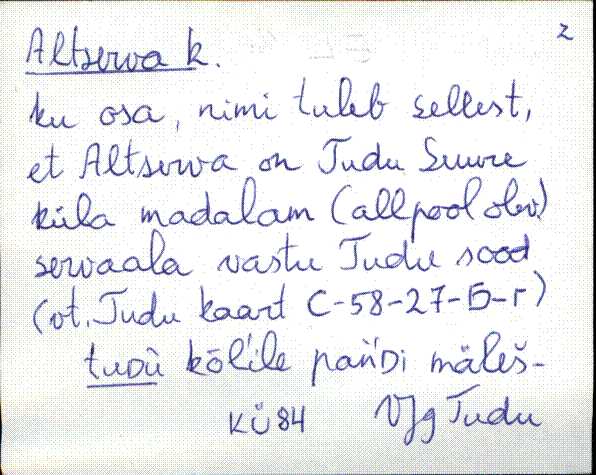 2
Altserva k.
ku osa, nimi tuleb sellest,
et Altserva on Tudu Suure
küla madalam (allpool olev)
servaala vastu Tudu sood
(vt. Tudu kaart C-58-27-Б-г)
tuDù kōĺile pańDi mäleš-
KÜ 84 VJg Tudu